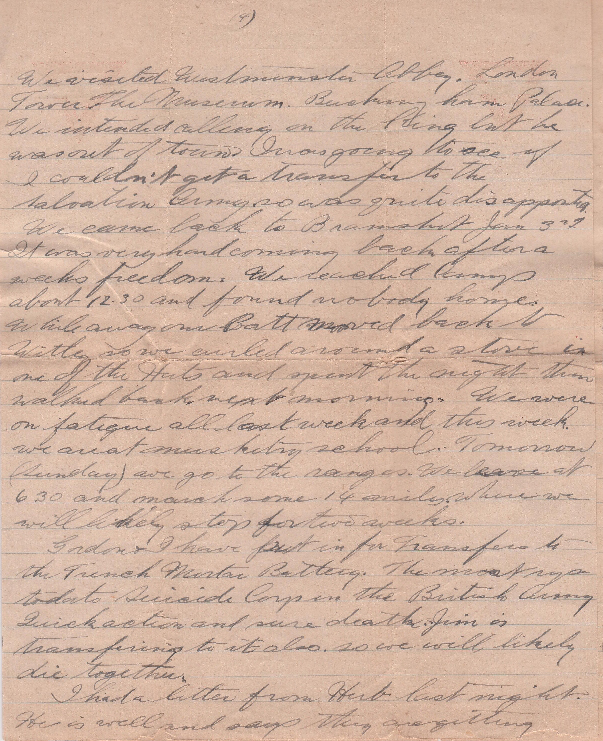 4)
We visited Westminster Abbey. London
Tower. The Museum. Buckingham Palace.
We intended calling on the King but he
was out of town. I was going to see if
I couldn't get a transfer to the
Salvation Army so was quite disappointed.
We came back to Bramshott Jan 3rd
It was very hard coming back after a
weeks freedom. We reached Camp
about 12.30 and found nobody home.
While away our Batt moved back to
Witley so we curled around a stove in
one of the Huts and spent the night then
walked back next morning. We were
on fatigue all last week and this week.
we are at musketry school. Tomorrow
(Sunday) we go to the ranges. We leave at
6 30 and march some 14 miles, where we
will likely stop for two weeks.
Gordon & I have put in for transfers to
the Trench Mortar Battery. The most
Suicide Corp in the British Army
Quick action and sure death. Jim is
transfiring to it also. so we will likely
die together.
I had a letter from Herb last night.
He is well and says they are getting